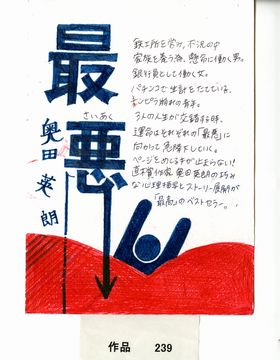 最悪
さいあく
奥田英朗
鉄工所を営み、不況の中
家族を養う為、懸命に働く男。
銀行員として働く女。
パチンコで生計をたてている、
チンピラ崩れの青年。
3人の人生が交錯する時、
運命はそれぞれの「最悪」に
向かって急降下していく。
ページをめくる手が止まらない!
直木賞作家 奥田英朗の巧み
な心理描写とストーリー展開が
「最高」のベストセラー。
作品 239